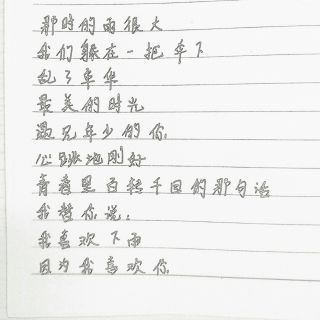 那时的雨很大
我们躲在一把伞下
乱了年华
最美的时光
遇见年少的你
心跳地刚好
青春里百转千回的那句话
我替你说：
我喜欢下雨
因为我喜欢你